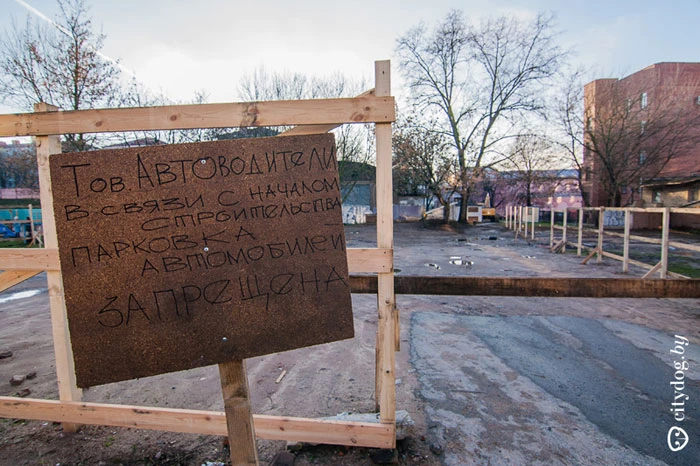 Тов. Автоводители
в связи с началом
строительства
парковка
автомобилей
запрещена
citydog.by